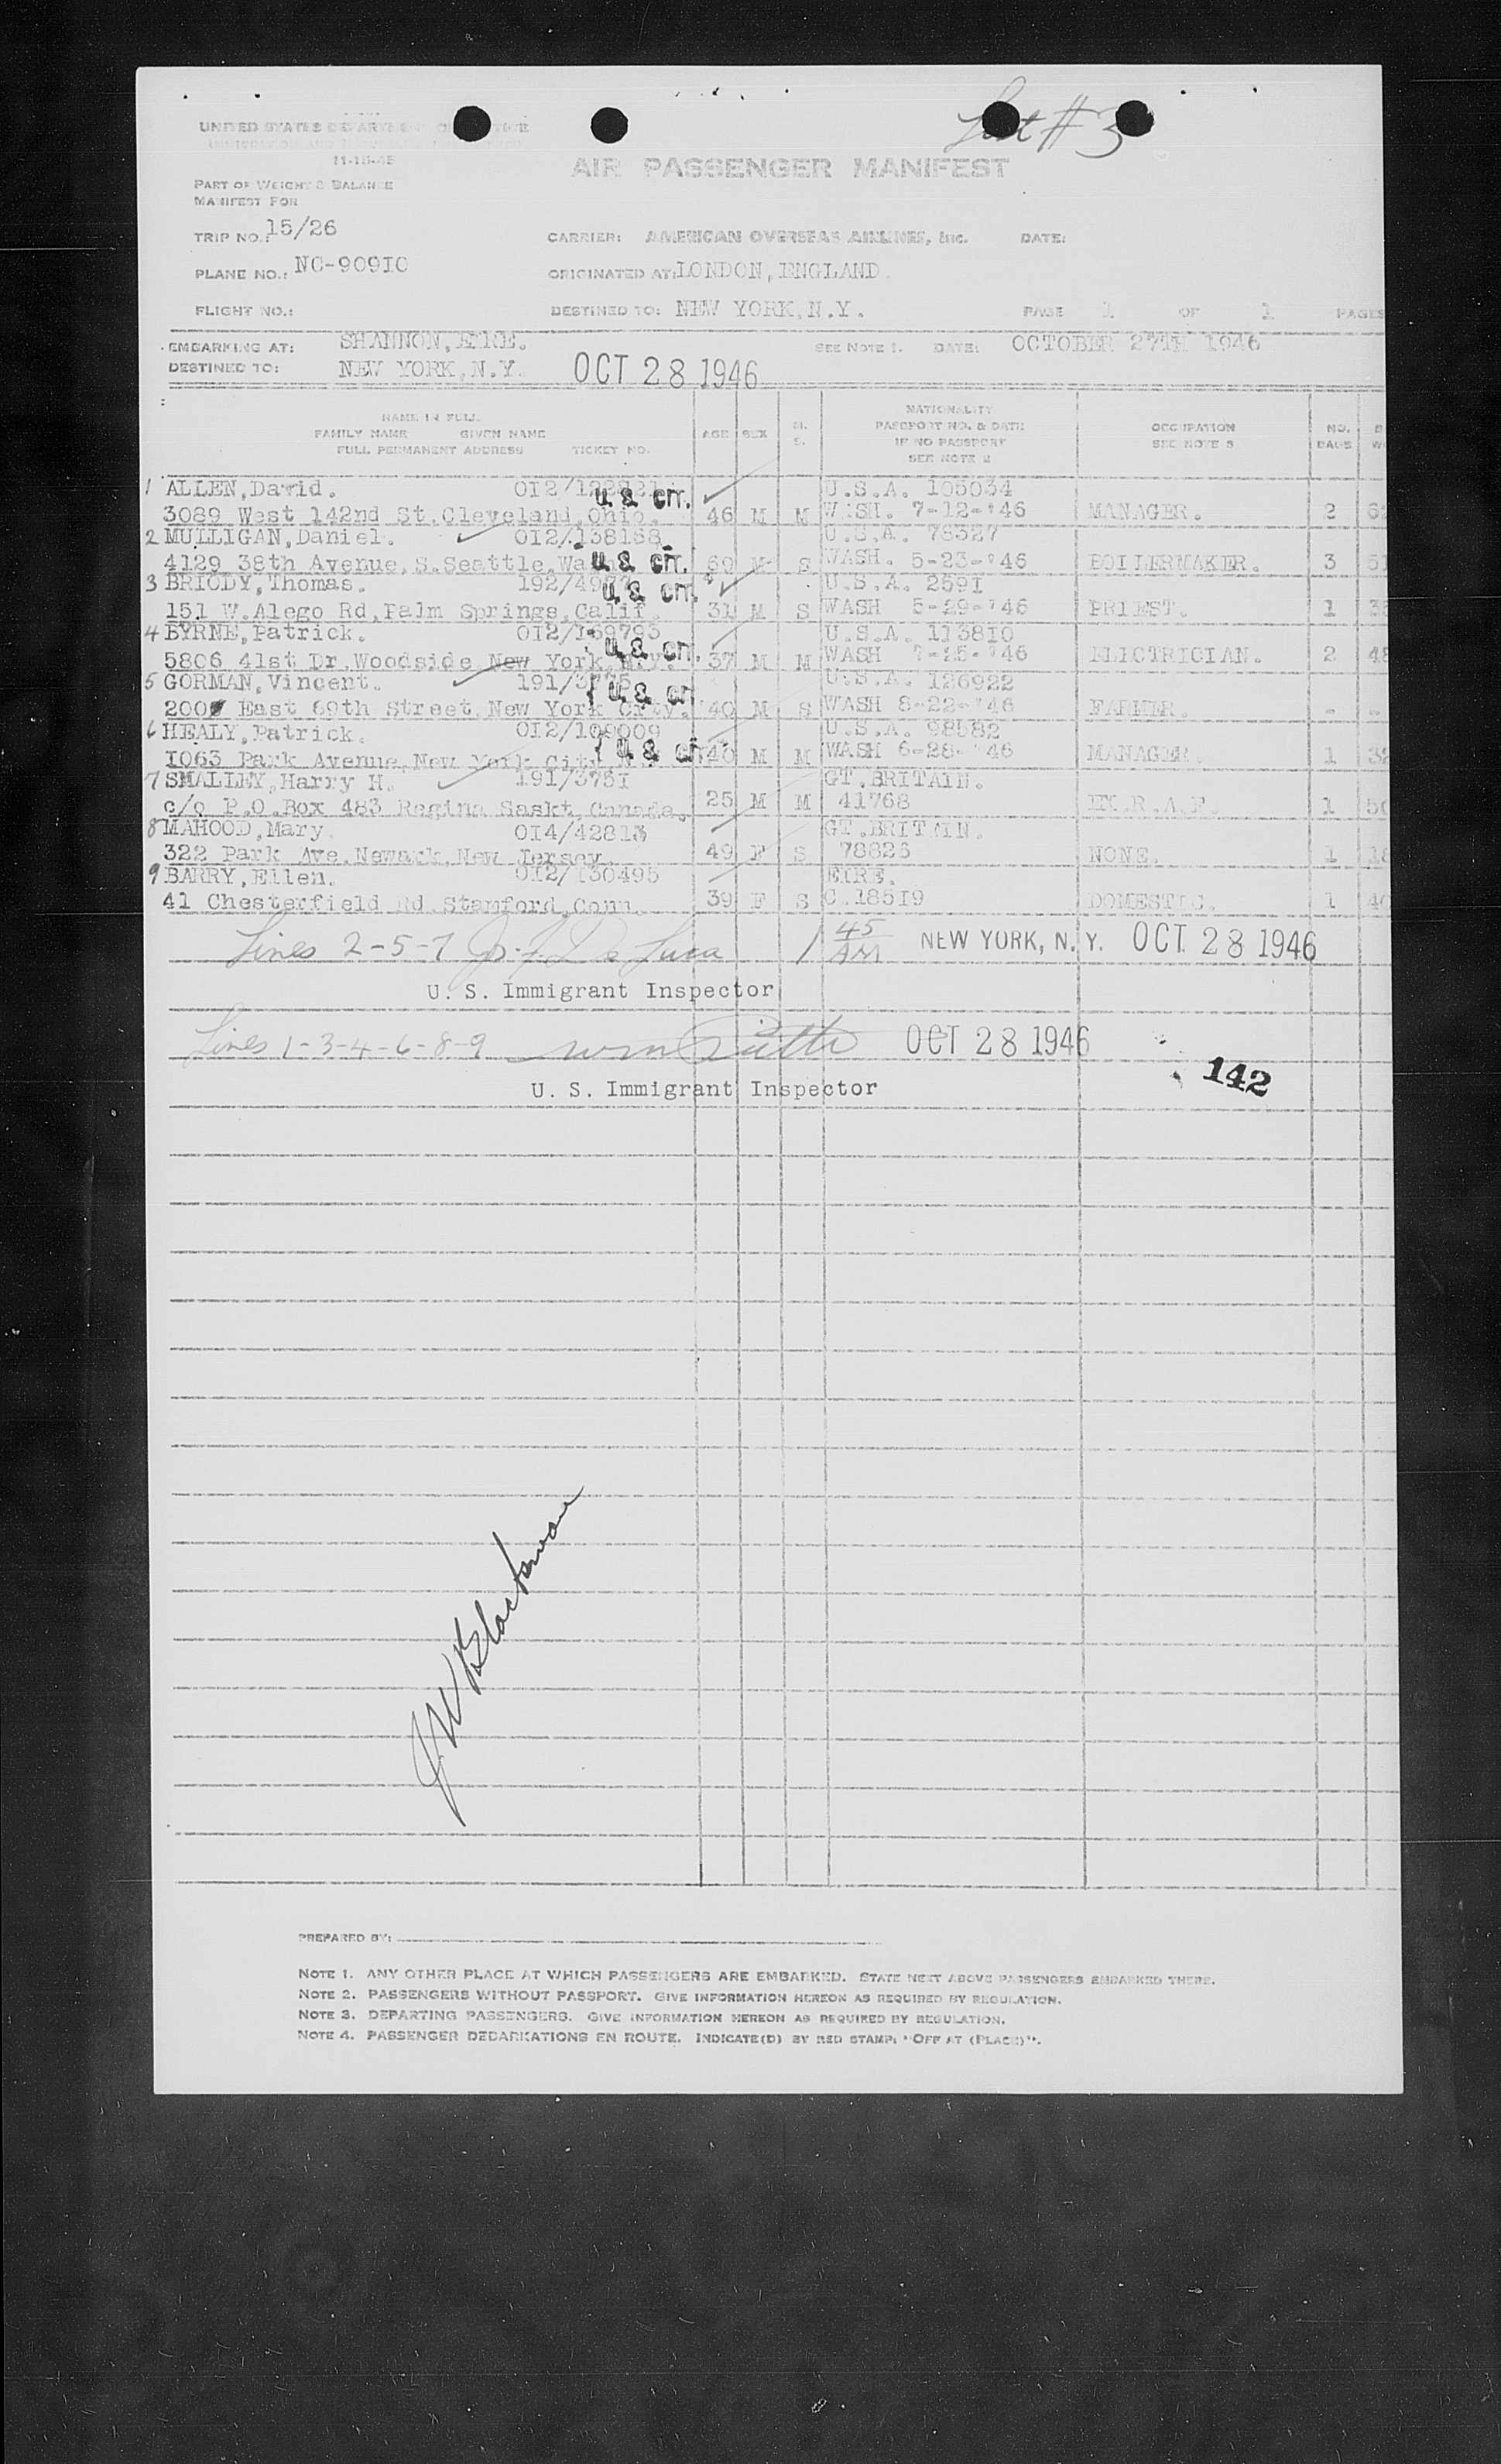 List # 3
UNITED STATES DEPARTMENT OF JUSTICE
11-15-45
AIR PASSENGER MANIFEST
PART OF WEIGHT & BALANCE
MANIFEST FOR
TRIP NO.: 15/26 CARRIER: AMERICAN OVERSEAS AIRLINES, Inc. DATE:
PLANE NO.: NC-90910 ORIGINATED AT: LONDON, ENGLAND.
FLIGHT NO.: DESTINED TO: NEW YORK, N.Y. PAGE 1 OF 1 PAGES
EMBARKING AT: SHANNON, EIRE. SEE NOTE 1. DATE: OCTOBER 27TH 1946
DESTINED TO: NEW YORK, N.Y. OCT 28 1946
NAME IN FULL
FAMILY NAME GIVEN NAME
FULL PERMANENT ADDRESS TICKET NO. AGE SEX M. S. NATIONALITY PASSPORT NO. & DATE IF NO PASSPORT SEE NOTE 2 OCCUPATION SEE NOTE 3 NO. BAGS
1 ALLEN, David. u. s. cit. U.S.A. 105034
3089 West 142nd St. Cleveland, Ohio. 46 M M WASH. 7-12-'46 MANAGER. 2
2 MULLIGAN, Daniel. 012/138188 U.S.A. 78327
4129 38th Avenue, S. Seattle, u. s. cit. S WASH. 5-23-'46 BOILERMAKER. 3
3 BRIODY, Thomas. u. s. cit. U.S.A. 2591
151 W. Alego Rd, Palm Springs, Calif. 31 M S WASH 5-29-'46 PRIEST. 1
4 BYRNE, Patrick. 012/169793 U.S.A. 113810
5806 41st Dr. Woodside New York, N.Y. u. s. cit. 37 M M WASH 7-25-'46 ELECTRICIAN. 2
5 GORMAN, Vincent. 191/3775 U.S.A. 126922
200 East 69th Street, New York City. u. s. cit. 40 M S WASH 8-22-'46 FARMER. - -
6 HEALY, Patrick. 012/109009 U.S.A. 98582
1063 Park Avenue, New York City u. s. cit. 40 M M WASH 6-28-'46 MANAGER. 1
7 SMALLEY, Harry H. 191/3751 GT. BRITAIN.
c/o P.O. Box 483 Regina Saskt, Canada. 25 M M 41768 EX. R.A.F. 1
8 MAHOOD, Mary. 014/42813 GT. BRITAIN.
322 Park Ave. Newark, New Jersey. 49 F S 78826 NONE. 1
9 BARRY, Ellen. 012/130495 EIRE.
41 Chesterfield Rd. Stamford, Conn. 39 F S C.18519 DOMESTIC. 1
Lines 2-5-7 De Luca 1 45 AM NEW YORK, N. Y. OCT 28 1946
U. S. Immigrant Inspector
Lines 1-3-4-6-8-9 OCT 28 1946
142
U. S. Immigrant Inspector
PREPARED BY:
NOTE 1. ANY OTHER PLACE AT WHICH PASSENGERS ARE EMBARKED. STATE NEXT ABOVE PASSENGERS EMBARKED THERE.
NOTE 2. PASSENGERS WITHOUT PASSPORT. GIVE INFORMATION HEREON AS REQUIRED BY REGULATION.
NOTE 3. DEPARTING PASSENGERS. GIVE INFORMATION HEREON AS REQUIRED BY REGULATION.
NOTE 4. PASSENGER DEBARKATIONS EN ROUTE. INDICATE(D) BY RED STAMP: "OFF AT (PLACE)".